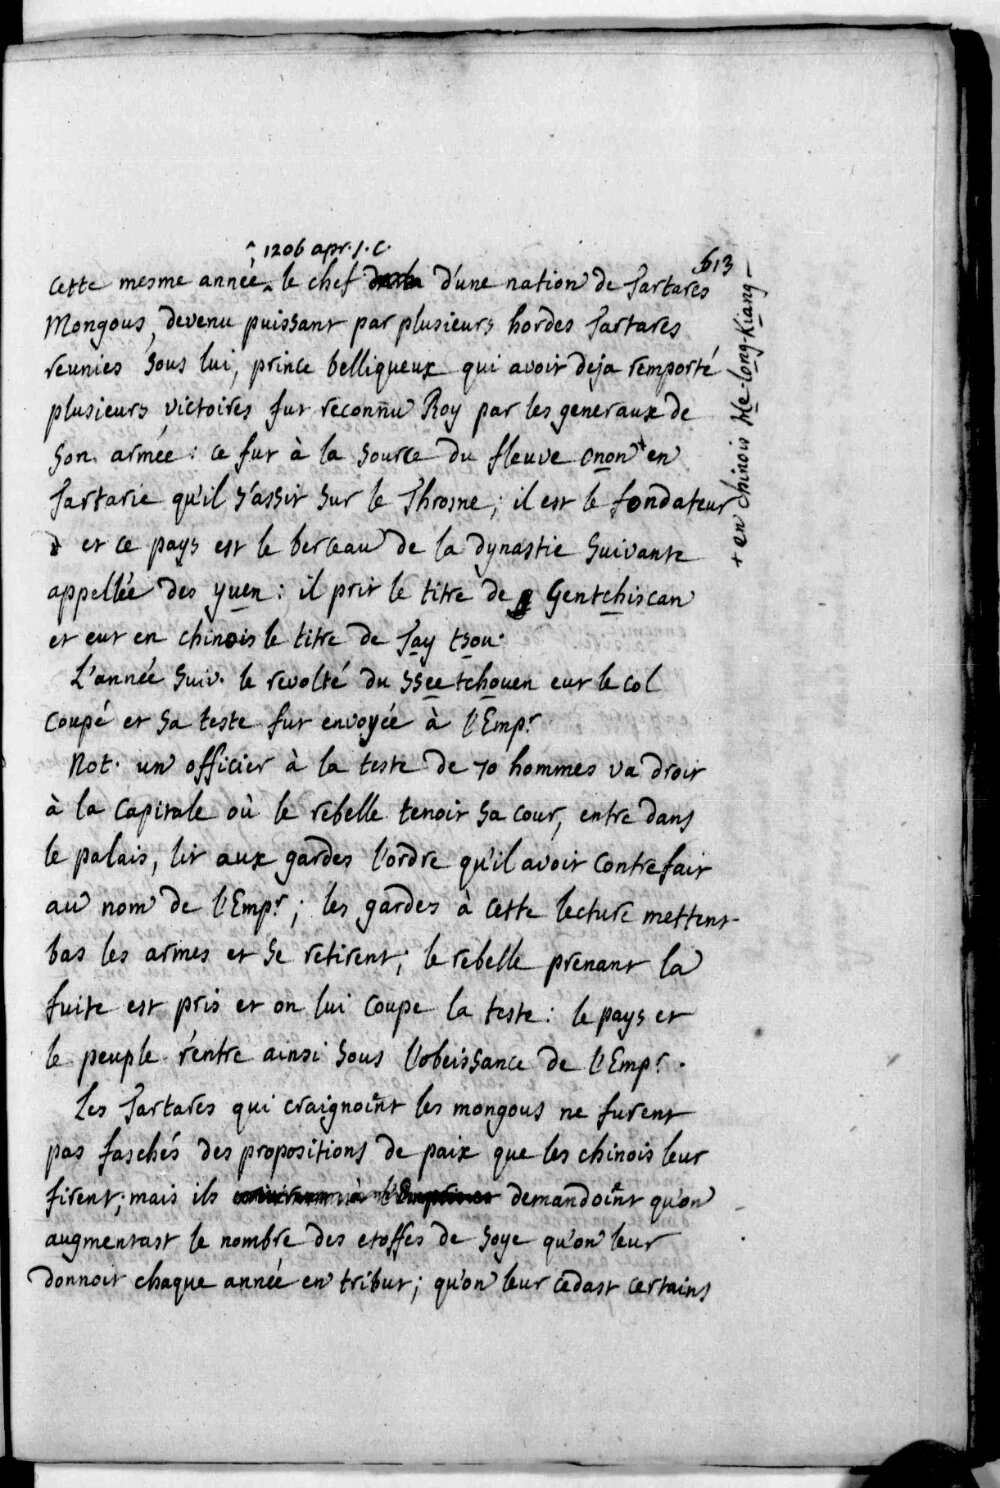 613
^ 1206 apr. J. C.
Cette mesme année ^ le chef d'une nation de Tartares
Mongous, devenu puissant par plusieurs hordes Tartares
reunies sous lui, prince belliqueux qui avoit deja remporté
plusieurs victoires fut reconnu Roy par les generaux de
son armée : ce fut à la source du fleuve Onon + en
Tartarie qu'il s'assit sur le Throsne ; il est le fondateur
et ce pays est le berceau de la dynastie suivante
appellée des yuen : il prit le titre de Gentchiscan
et eut en chinois le titre de Tay tsou.
L'année suiv. le revolté du ssee tchouen eut le col
coupé et sa teste fut envoyée à l'Empr.
Not. un officier à la teste de 70 hommes va droit
à la capitale où le rebelle tenoit sa cour, entre dans
le palais, lit aux gardes l'ordre qu'il avoit contrefait
au nom de l'Empr ; les gardes à cette lecture mettent
bas les armes et se retirent ; le rebelle prenant la
fuite est pris et on lui coupe la teste : le pays et
le peuple rentre ainsi sous l'obeissance de l'Empr.
Les Tartares qui craignoint les mongous ne furent
pas faschés des propositions de paix que les chinois leur
firent ; mais ils demandoint qu'on
augmentast le nombre des etoffes de soye qu'on leur
donnoit chaque année en tribut ; qu'on leur cedast certains
+ en chinois He-long-Kiang